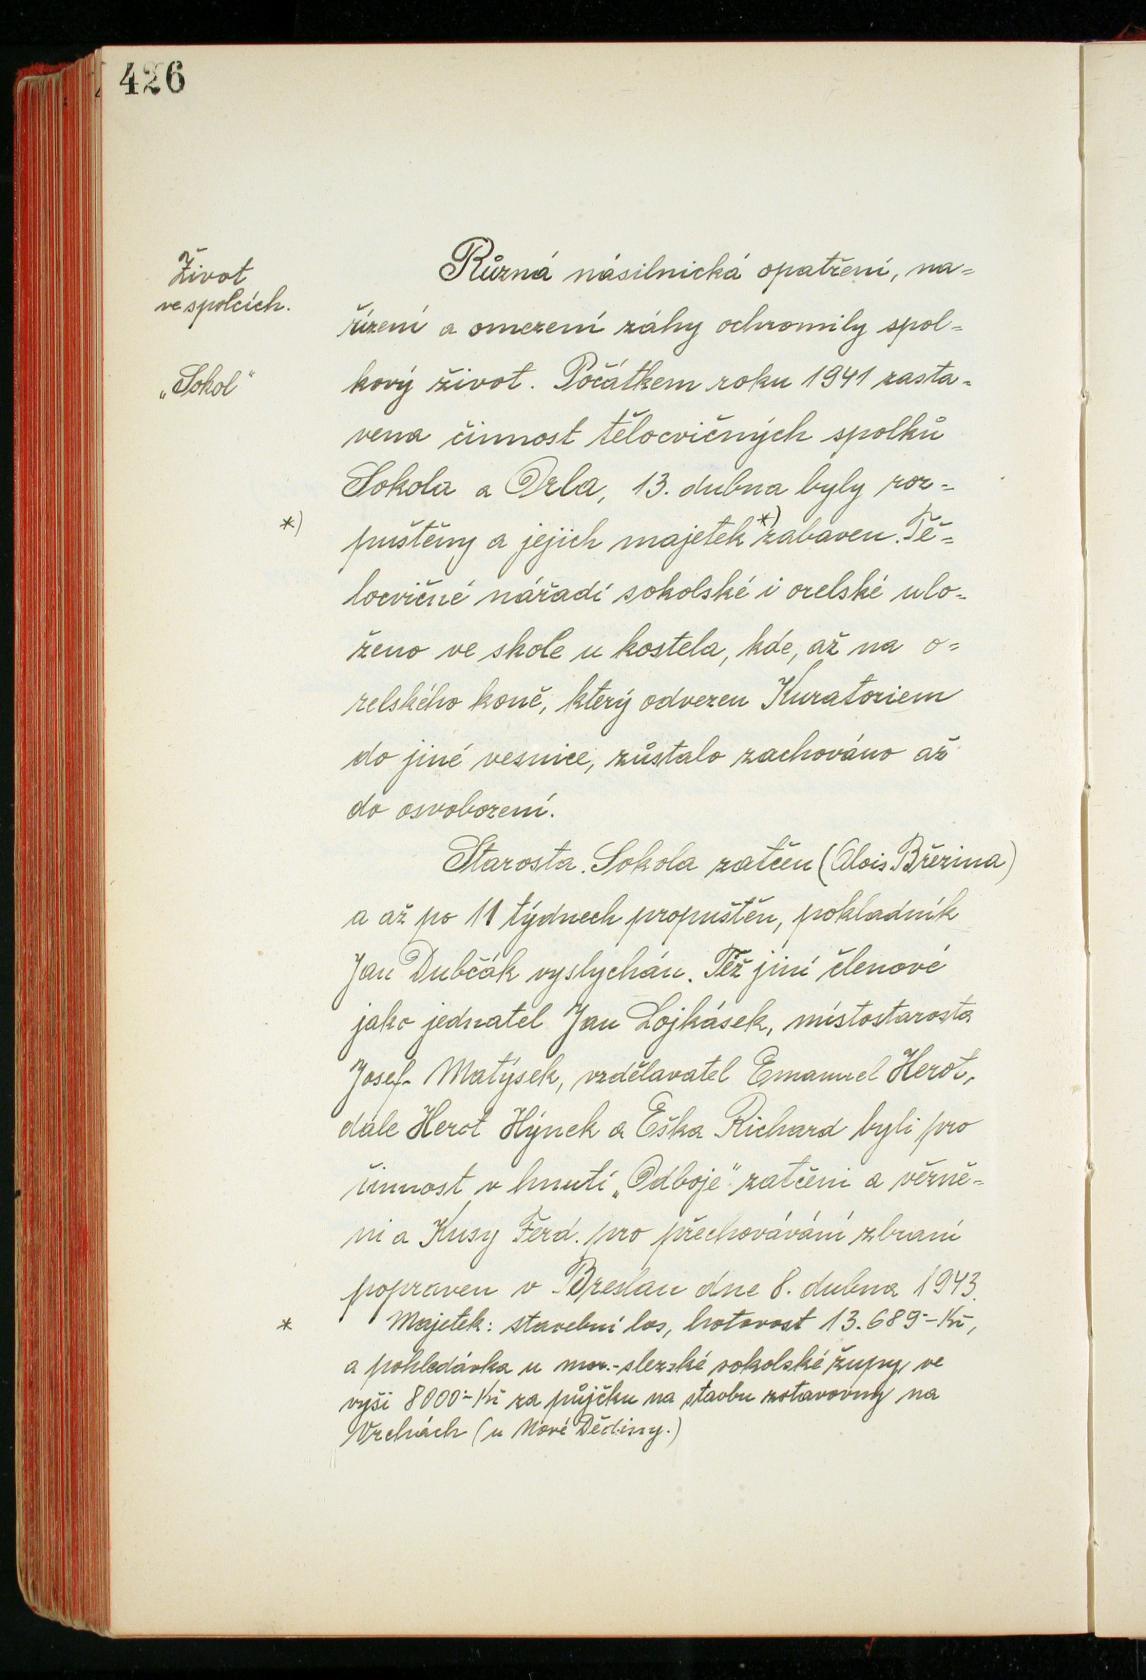 426
Život
ve spolcích.
„Sokol"
Různá násilnická opatření, na=
řízení a omezení záhy ochromily spol=
kový život. Počátkem roku 1941 zasta=
vena činnost tělocvičných spolků
Sokola a Orla, 13. dubna byly roz=
*)
puštěny a jejich majetek *) zabaven. Tě=
locvičné nářadí sokolské i orelské ulo=
ženo ve skole u kostela, kde, až na o=
relského koně, který odvezen Kuratoriem
do jiné vesnice, zůstalo zachováno až
do osvobození.
Starosta Sokola zatčen (Alois Březina)
a až po 11 týdnech propuštěn, pokladník
Jan Dubčák vyslychán. Též jiní členové
jako jednatel Jan Lojkásek, místostarosta
Josef Matýsek, vzdělavatel Emanuel Herot,
dále Herot Hýnek a Eška Richard byli pro
činnost v hnutí „Odboje" zatčeni a vězně=
ni a Kusy Ferd. pro přechovávání zbraní
popraven v Breslau dne 8. dubna 1943.
*
Majetek: stavební los, hotovost 13.689·- Kč,
a pohledávka u mor.-slezské sokolské župy, ve
vyši 8000·- Kč za půjčku na stavbu zotavovny na
Vrchách (u Nové Dědiny.)